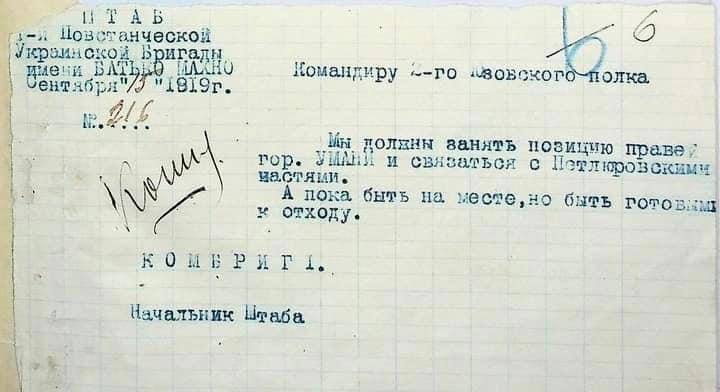 ШТАБ
1-й Повстанческой
Украинской Бригады
имени БАТЬКО МАХНО
Сентября "15" 1919г.
№. 216...
Командиру 2-го Юзовского полка
6 6
Копия
Мы должны занять позицию правей
гор. УМАНИ и связаться с Петлюровскими
частями.
А пока быть на месте,но быть готовыми
к отходу.
КОМБРИГ 1.
Начальник Штаба